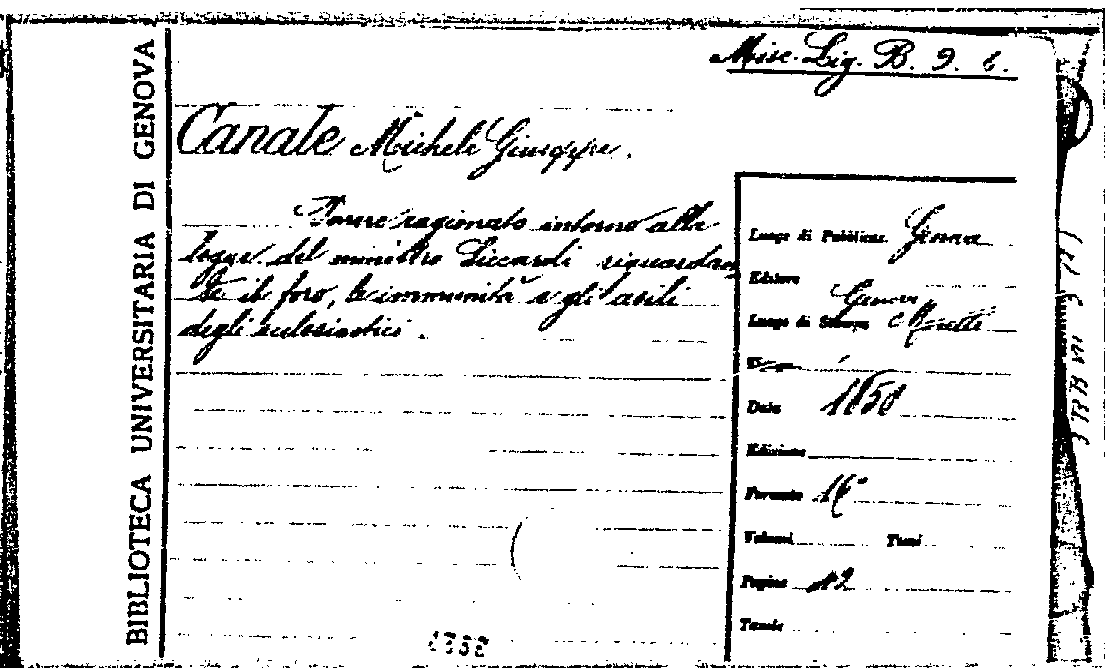 BIBLIOTECA UNIVERSITARIA DI GENOVA
Misc. Lig. B. 9. 6.
Canale Michele Giuseppe.
Parere ragionato intorno alla
legge del ministro Siccardi riguardan
te il foro, le immunità e gli asili
degli eclesiastici.
Luogo di Pubblicaz. Genova
Editore
Luogo di Stampa Genova
Data 1850
Edizione
Formato 16°
Volumi Tomi
Pagine 12
Tavole